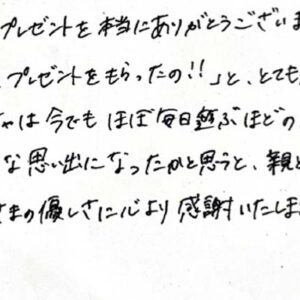 プレゼントを本当にありがとうございま
プレゼントをもらったの!!」と、とても
ゃは今でもほぼ毎日遊ぶほどの
な思い出になったかと思うと、親と
さまの優しさに心より感謝いたしま